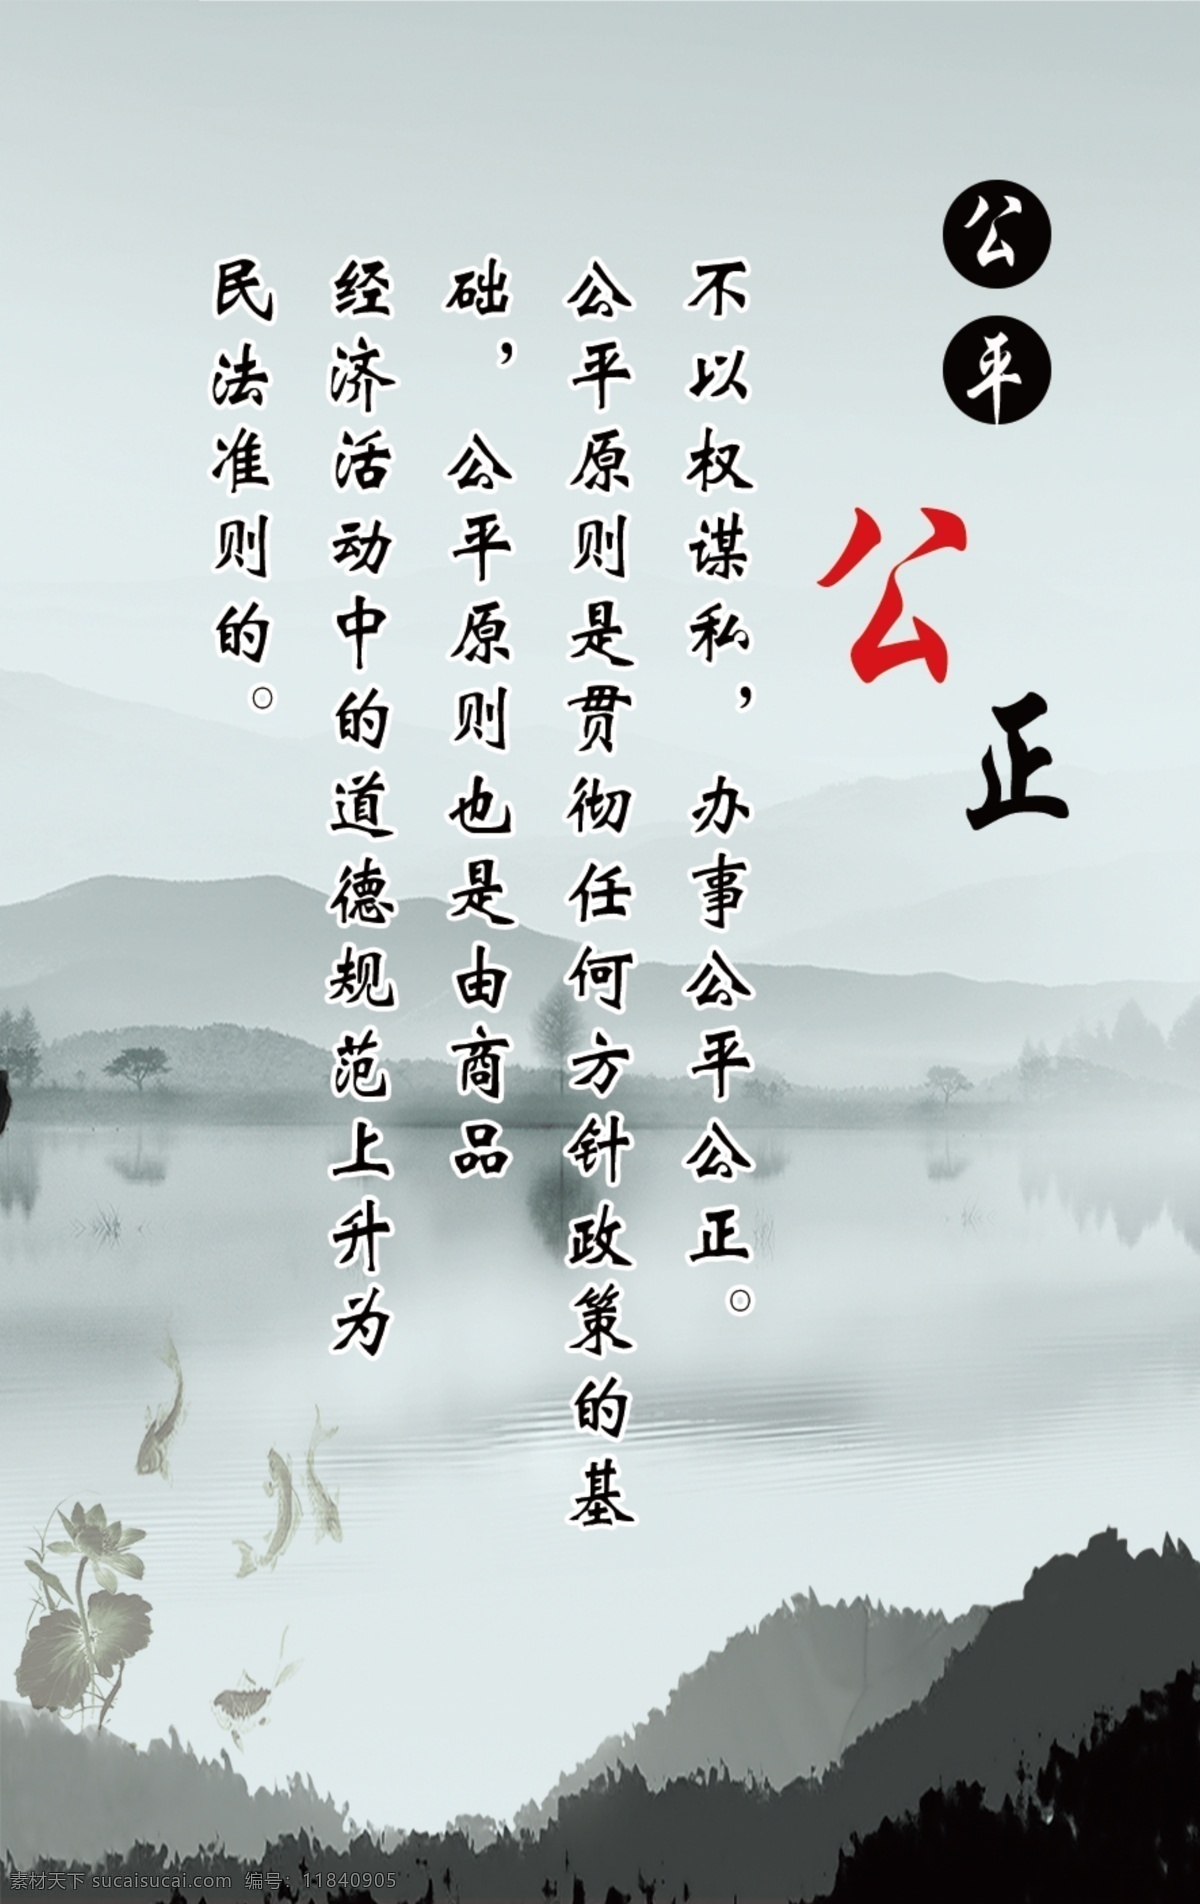 公平
公正
不以权谋私，办事公平公正。
公平原则是贯彻任何方针政策的基
础，公平原则也是由商品
经济活动中的道德规范上升为
民法准则的。
素材天下 sucaisucai.com 编号：11840905